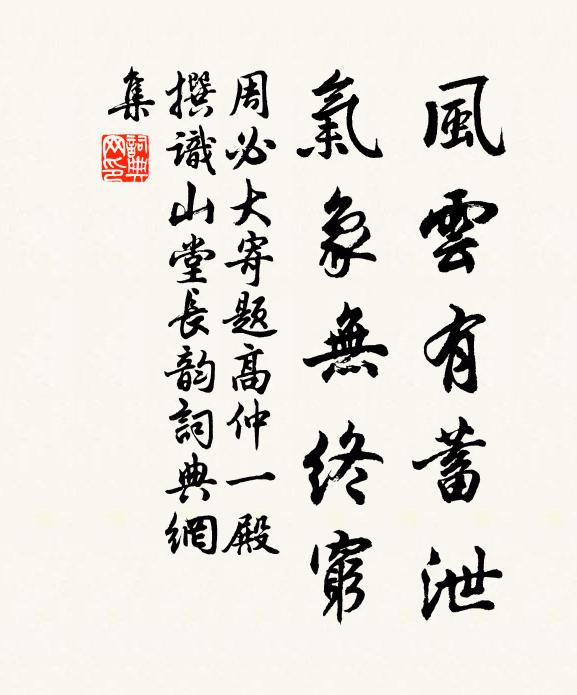 風雲有蓄泄
氣象無終窮
周必大寄題高仲一殿
撰識山堂長韵詞典網
集
詞典網印